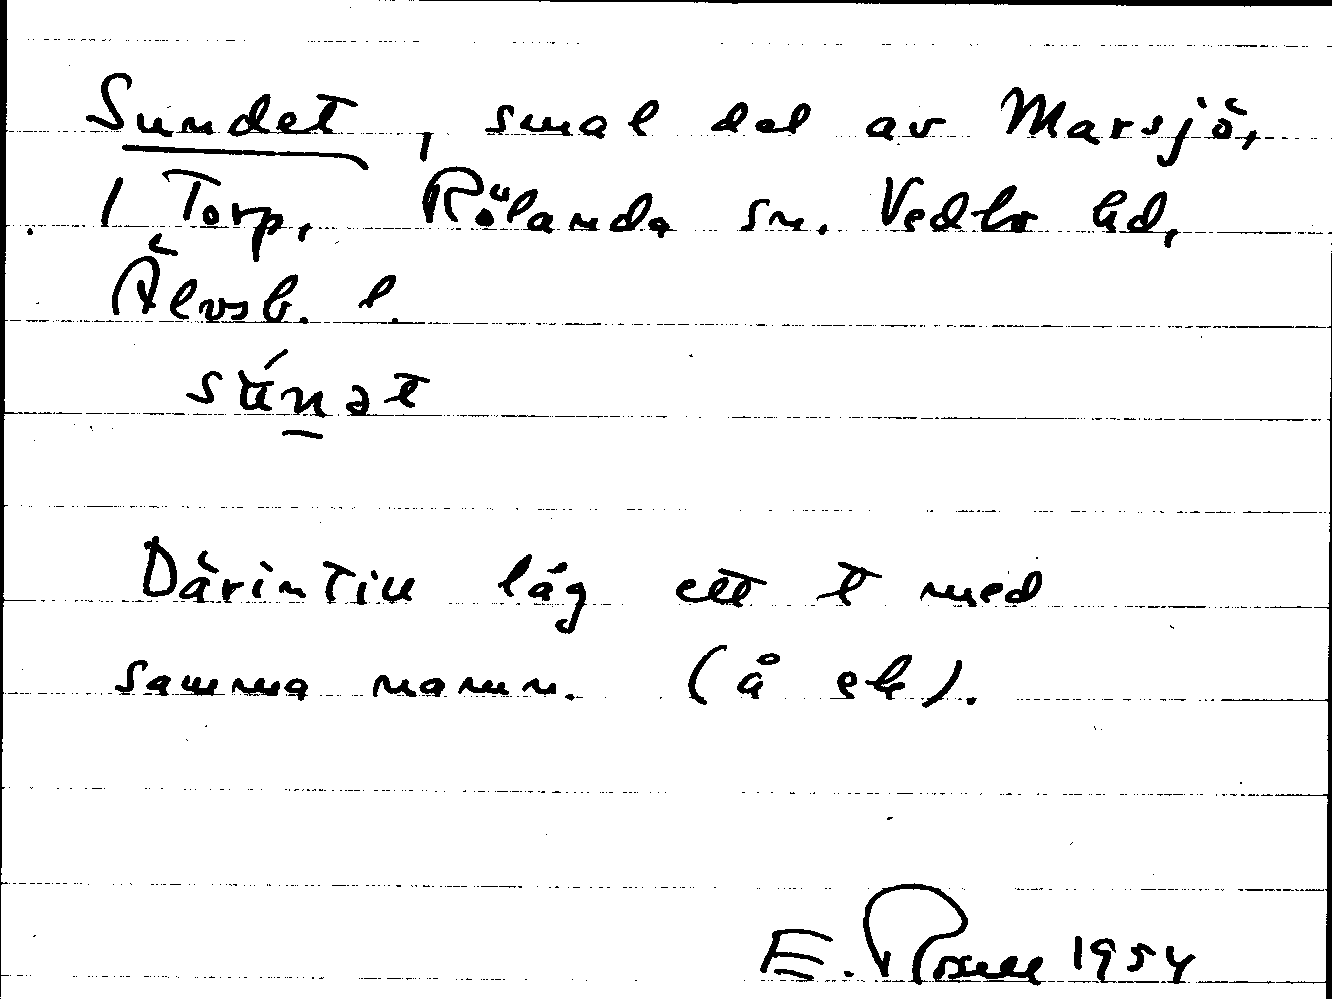 Sundet, smal del av Marsjö,
1 Torp, Rölanda sn. Vedbo hd,
Älvsb. l.
Därintill låg ett t med
samma namn. (å ek).
E. Rosell 1954